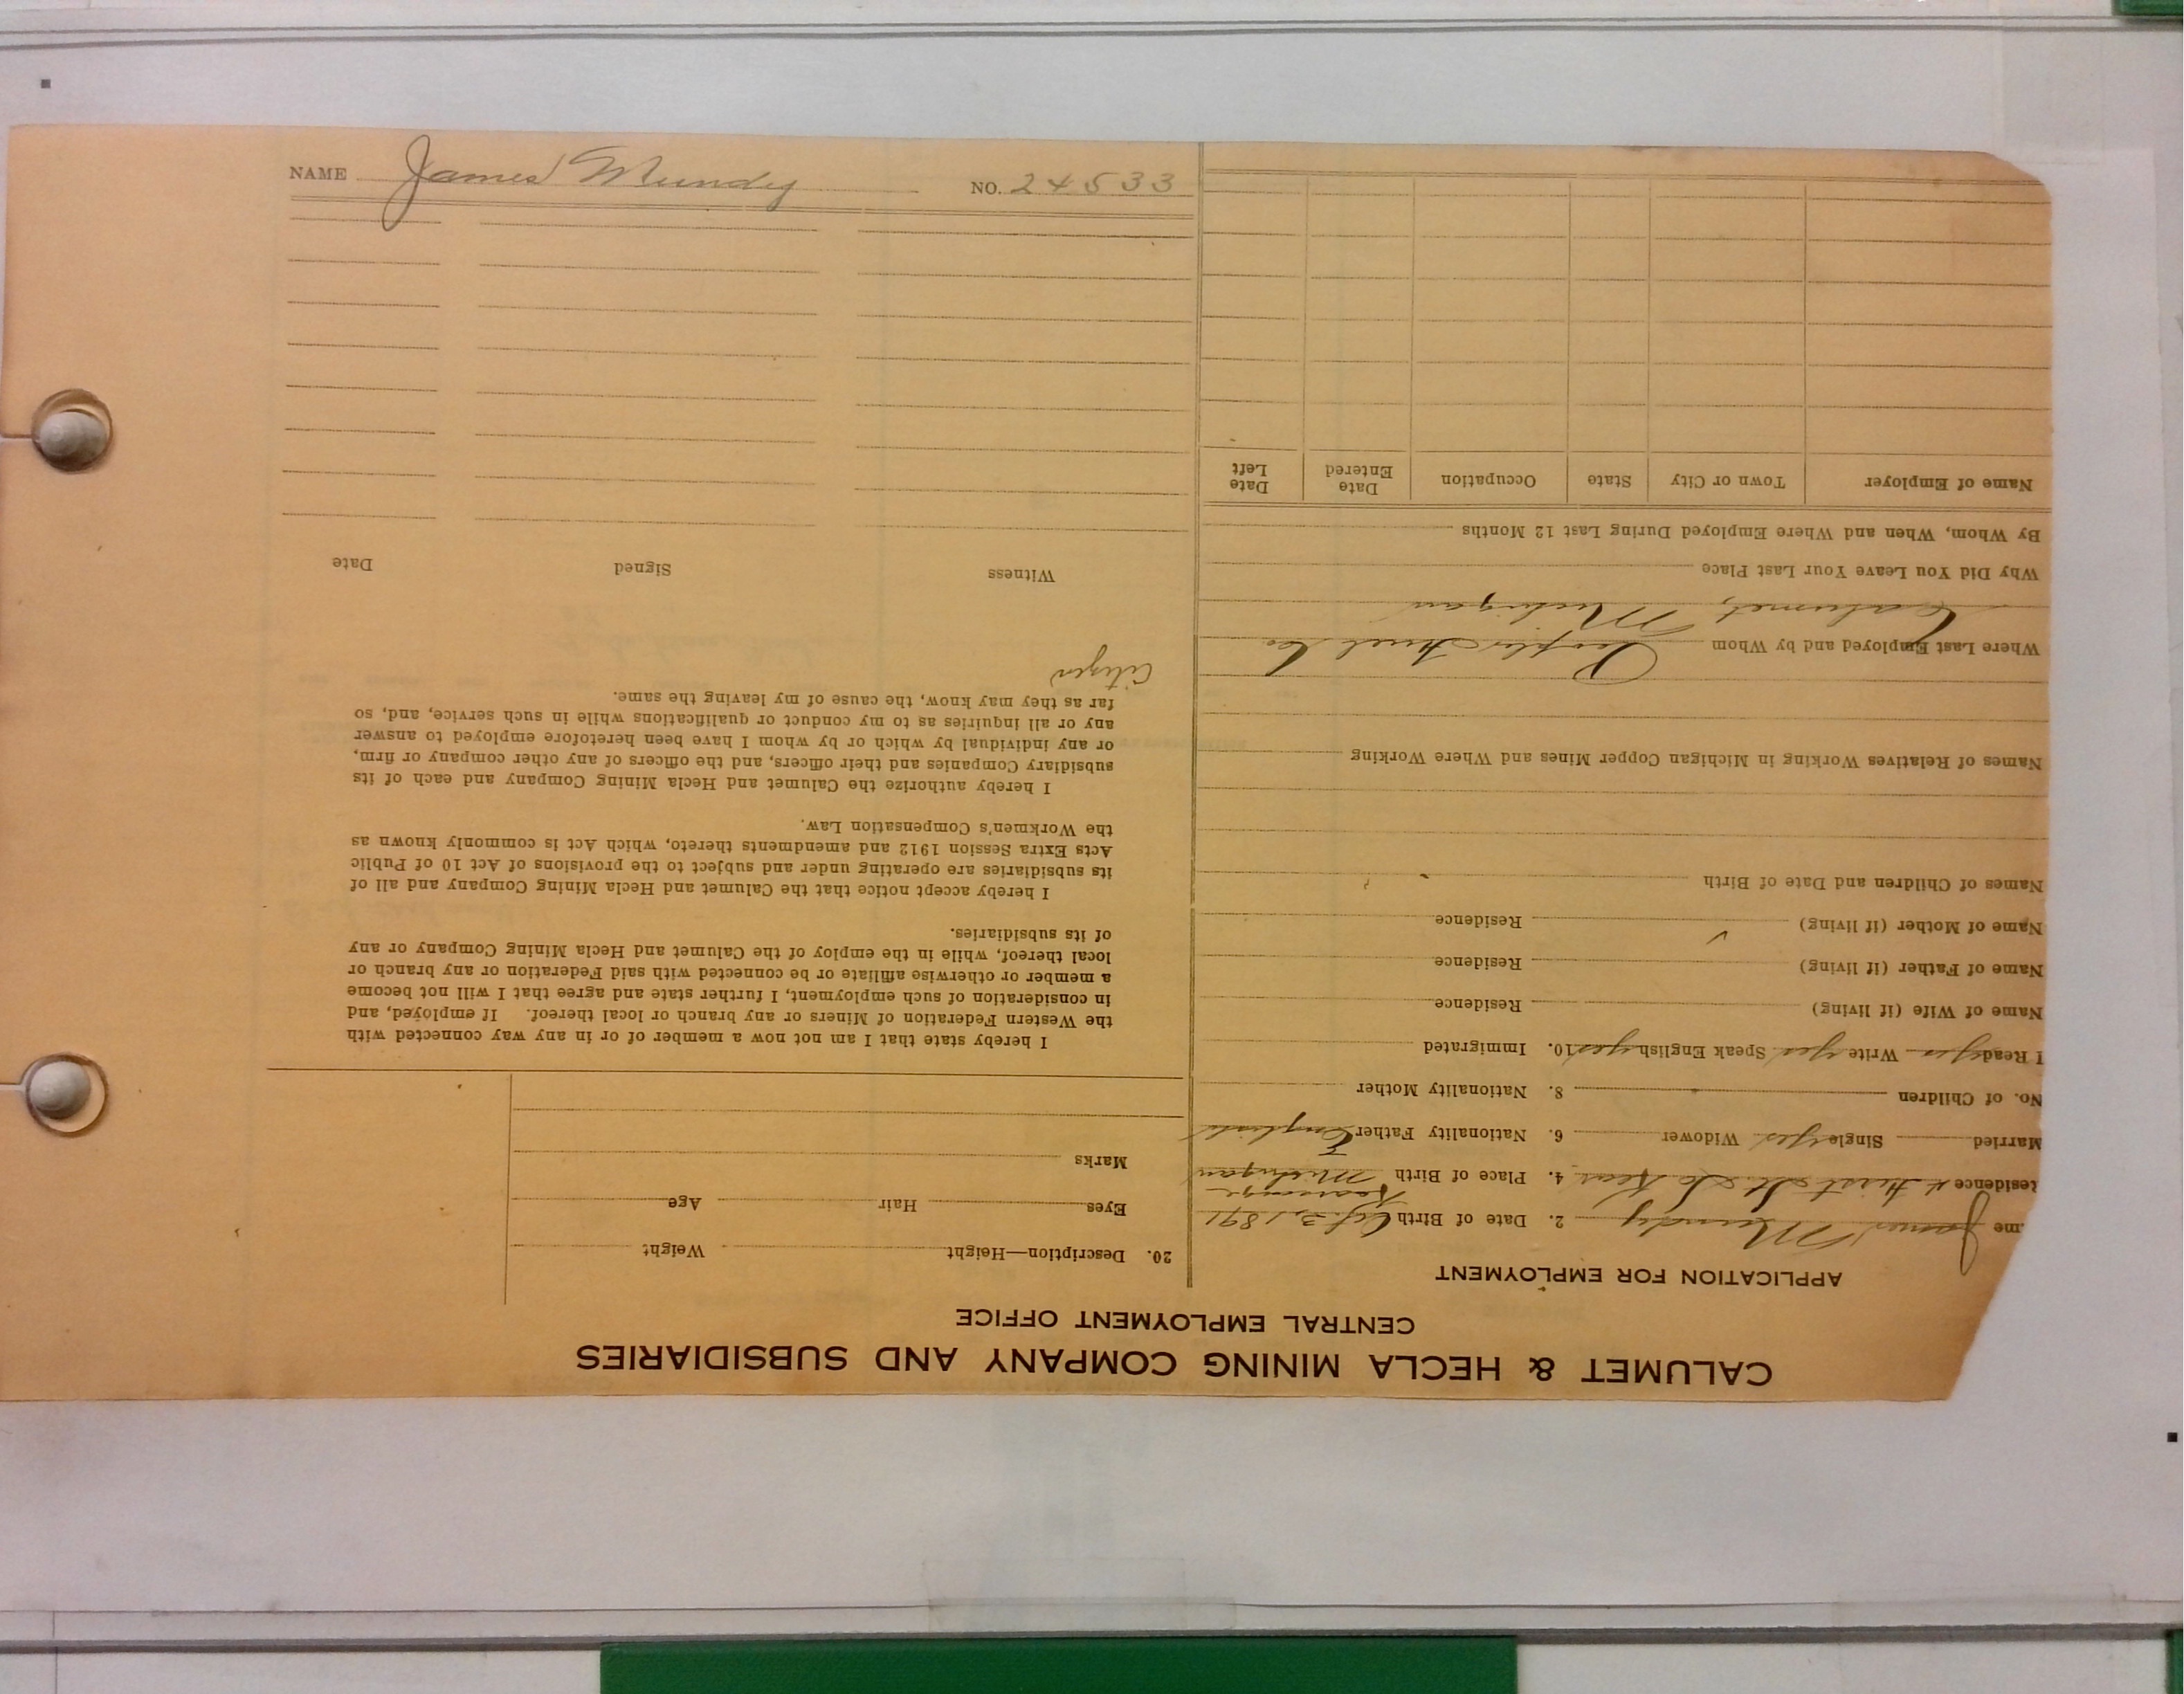 CALUMET & HECLA MINING COMPANY AND SUBSIDIARIES
CENTRAL EMPLOYMENT OFFICE
APPLICATION FOR EMPLOYMENT
me James Mundy 2. Date of Birth 3, 1891
Residence First St. So Kear 4. Place of Birth Kearsarge Michigan
Married Single yes Widower 6. Nationality Father English
No. of Children 8. Nationality Mother
I Read yes Write yes Speak English yes 10. Immigrated
Name of Wife (if living) Residence
Name of Father (if living) Residence
Name of Mother (if living) Residence
Names of Children and Date of Birth
Names of Relatives Working in Michigan Copper Mines and Where Working
Where Last Employed and by Whom Peoples Fuel Co
Calumet, Michigan
Why Did You Leave Your Last Place
By Whom, When and Where Employed During Last 12 Months
Name of Employer Town or City State Occupation Date Entered Date Left
20. Description—Height Weight
Eyes Hair Age
Marks
I hereby state that I am not now a member of or in any way connected with
the Western Federation of Miners or any branch or local thereof. If employed, and
in consideration of such employment, I further state and agree that I will not become
a member or otherwise affiliate or be connected with said Federation or any branch or
local thereof, while in the employ of the Calumet and Hecla Mining Company or any
of its subsidiaries.
I hereby accept notice that the Calumet and Hecla Mining Company and all of
its subsidiaries are operating under and subject to the provisions of Act 10 of Public
Acts Extra Session 1912 and amendments thereto, which Act is commonly known as
the Workmen's Compensation Law.
I hereby authorize the Calumet and Hecla Mining Company and each of its
subsidiary Companies and their officers, and the officers of any other company or firm,
or any individual by which or by whom I have been heretofore employed to answer
any or all inquiries as to my conduct or qualifications while in such service, and, so
far as they may know, the cause of my leaving the same.
Citizen
Witness Signed Date
NAME James Mundy NO. 24533